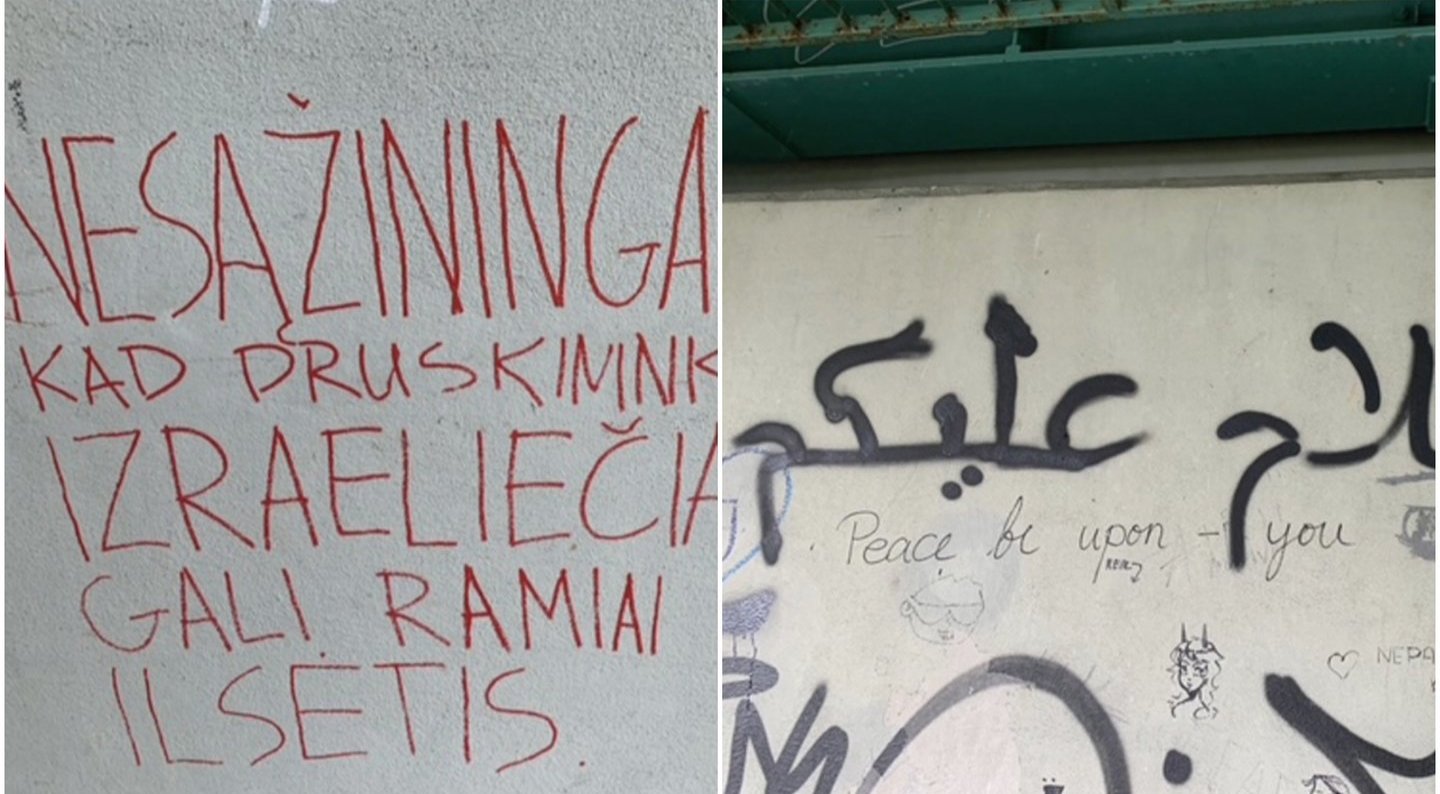 NESĄŽININGA
KAD DRUSKININK
IZRAELIEČIA
GALI RAMIAI
ILSĖTIS.
لام عليكم
Peace be upon - you
NEPA